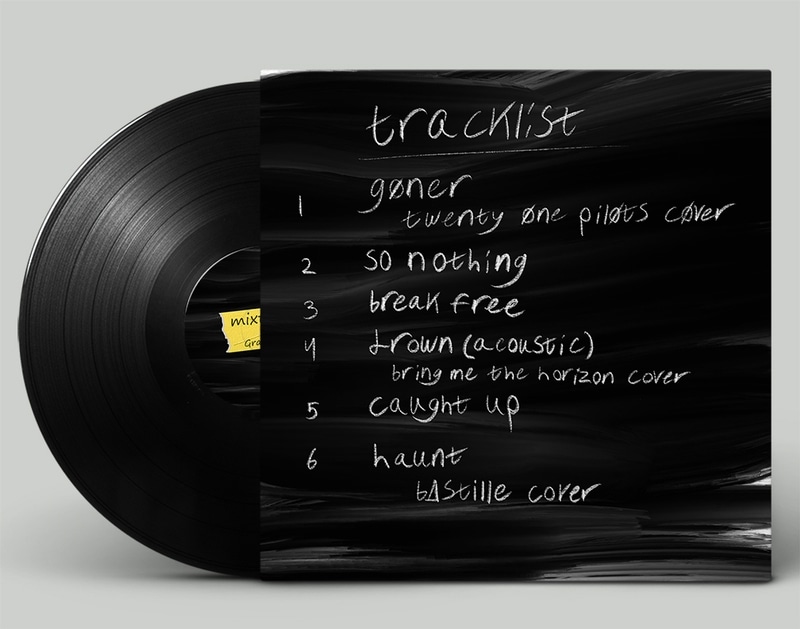 tracklist
1 gøner
twenty øne piløts cøver
2 so nothing
3 break free
4 drown (acoustic)
bring me the horizon cover
5 caught up
6 haunt
bΔstille cover